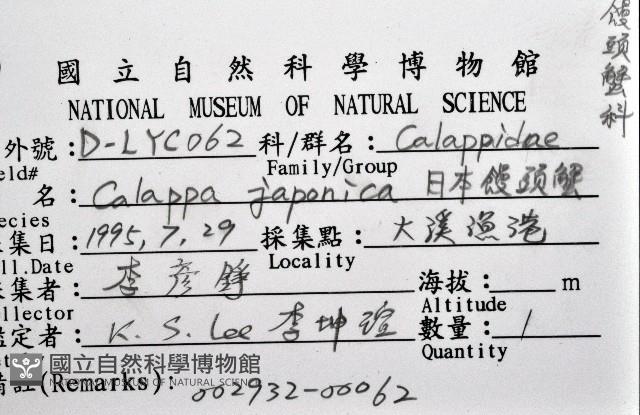 饅頭蟹科
國立自然科學博物館
NATIONAL MUSEUM OF NATURAL SCIENCE
外號:D-LYC062 科/群名:Calappidae
eld# Family/Group
名:Calappa japonica 日本饅頭蟹
ecies
集日:1995,7,29 採集點:大溪漁港
ll.Date Locality
集者:李彥錚 海拔: m
llector Altitude
定者:K.S.Lee 李坤瑄 數量:1
Quantity
國立自然科學博物館
NATIONAL MUSEUM OF NATURAL SCIENCE
備註(Remarks):002932-00062